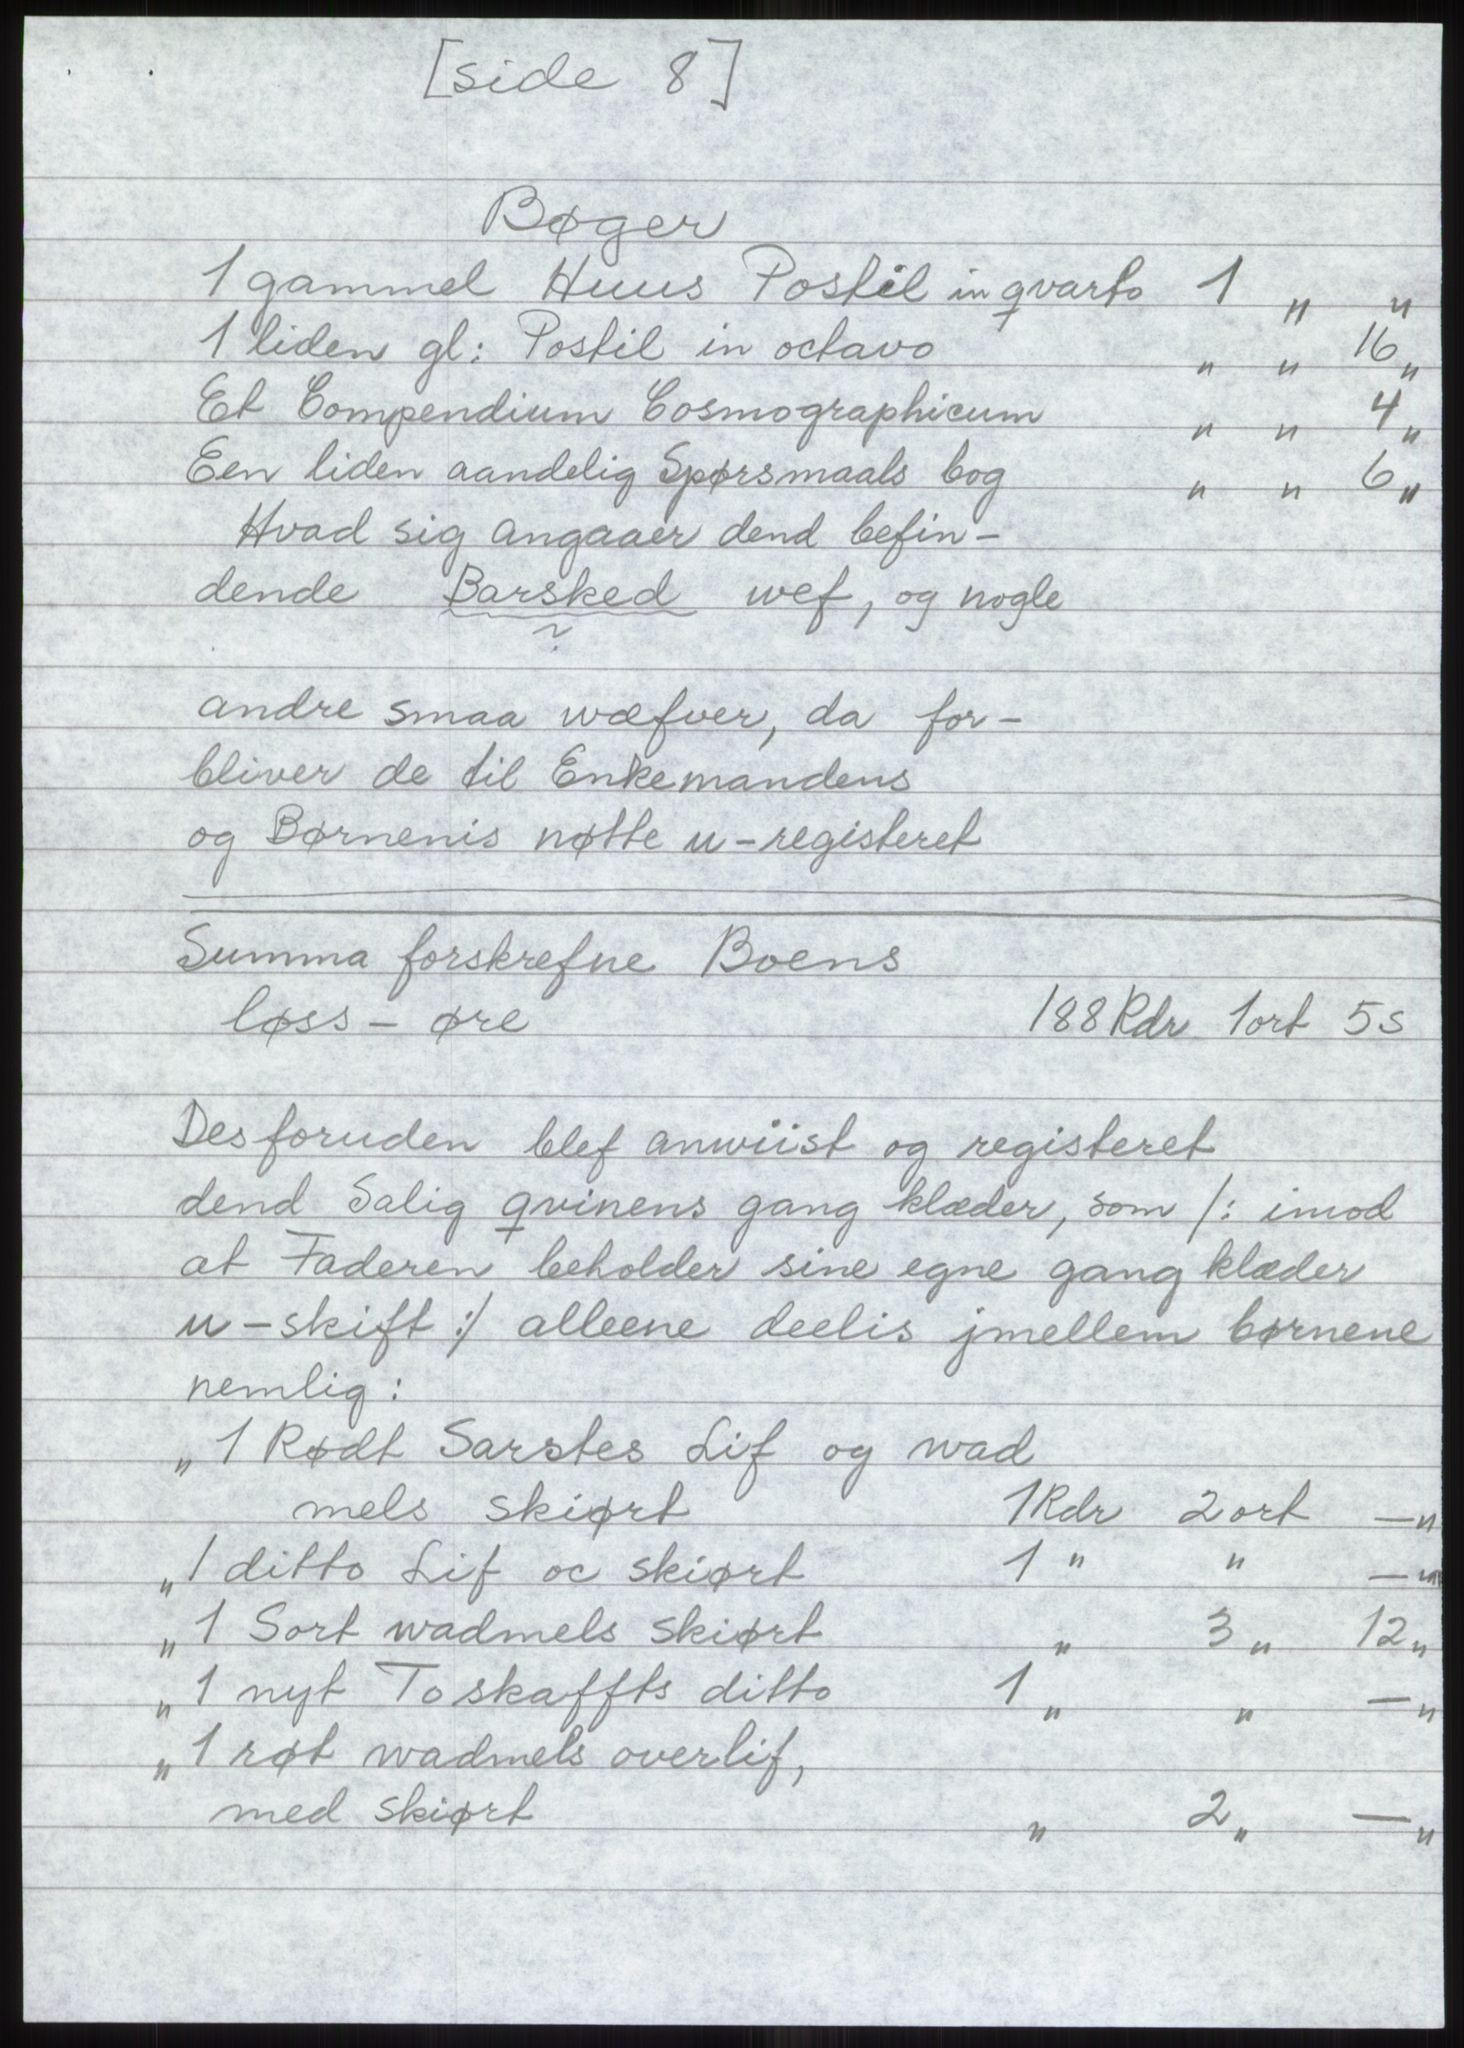 [side 8]
Bøger
1 gammel Huus Postil in qvarto 1 „ „
1 liden gl: Postil in octavo „ „ 16 „
Et Compendium Cosmographicum „ „ 4 „
Een liden aandelig Spørsmaals bog „ „ 6 „
Hvad sig angaaer dend befin-
dende Barsked wef, og nogle
?
andre smaa wæfver, da for-
bliver de til Enkemandens
og Børnenis nøtte u-registeret
Summa forskrefne Boens
løss - øre 188 Rdr 1 ort 5 s
Desforuden blef anwiist og registeret
dend Salig qvinens gang klæder, som /: imod
at Faderen beholder sine egne gang klæder
u-skift :/ alleene deelis jmellem børnene
nemlig:
„ 1 Rødt Sarstes Lif og wad
mels skiørt 1 Rdr 2 ort — „
„ 1 ditto Lif oc skiørt 1 „ „ — „
„ 1 Sort wadmels skiørt „ 3 „ 12 „
„ 1 nyt Toskaffts ditto 1 „ „ — „
„ 1 røt wadmels overlif,
med skiørt „ 2 „ — „